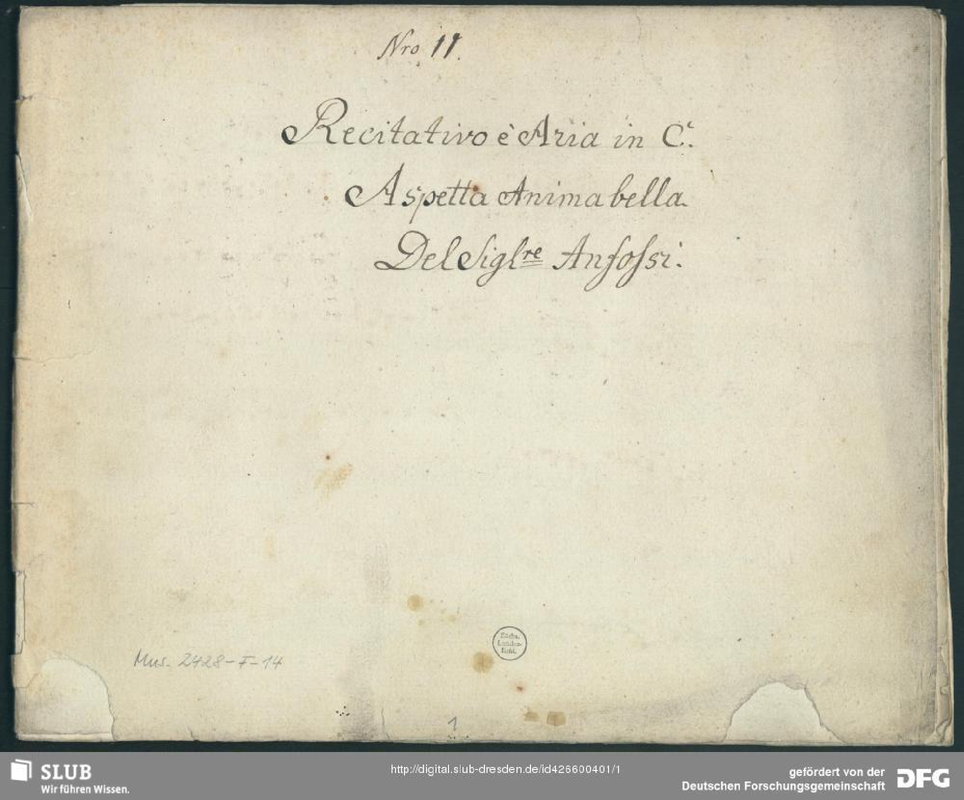 Nro 11.
Recitativo è Aria in C.
Aspetta Anima bella
Del Siglre Anfoſsi.
Sächs.
Landes-
Bibl.
Mus. 2428-F-14
1
SLUB
Wir führen Wissen.
http://digital.slub-dresden.de/id426600401/1
gefördert von der
Deutschen Forschungsgemeinschaft
DFG